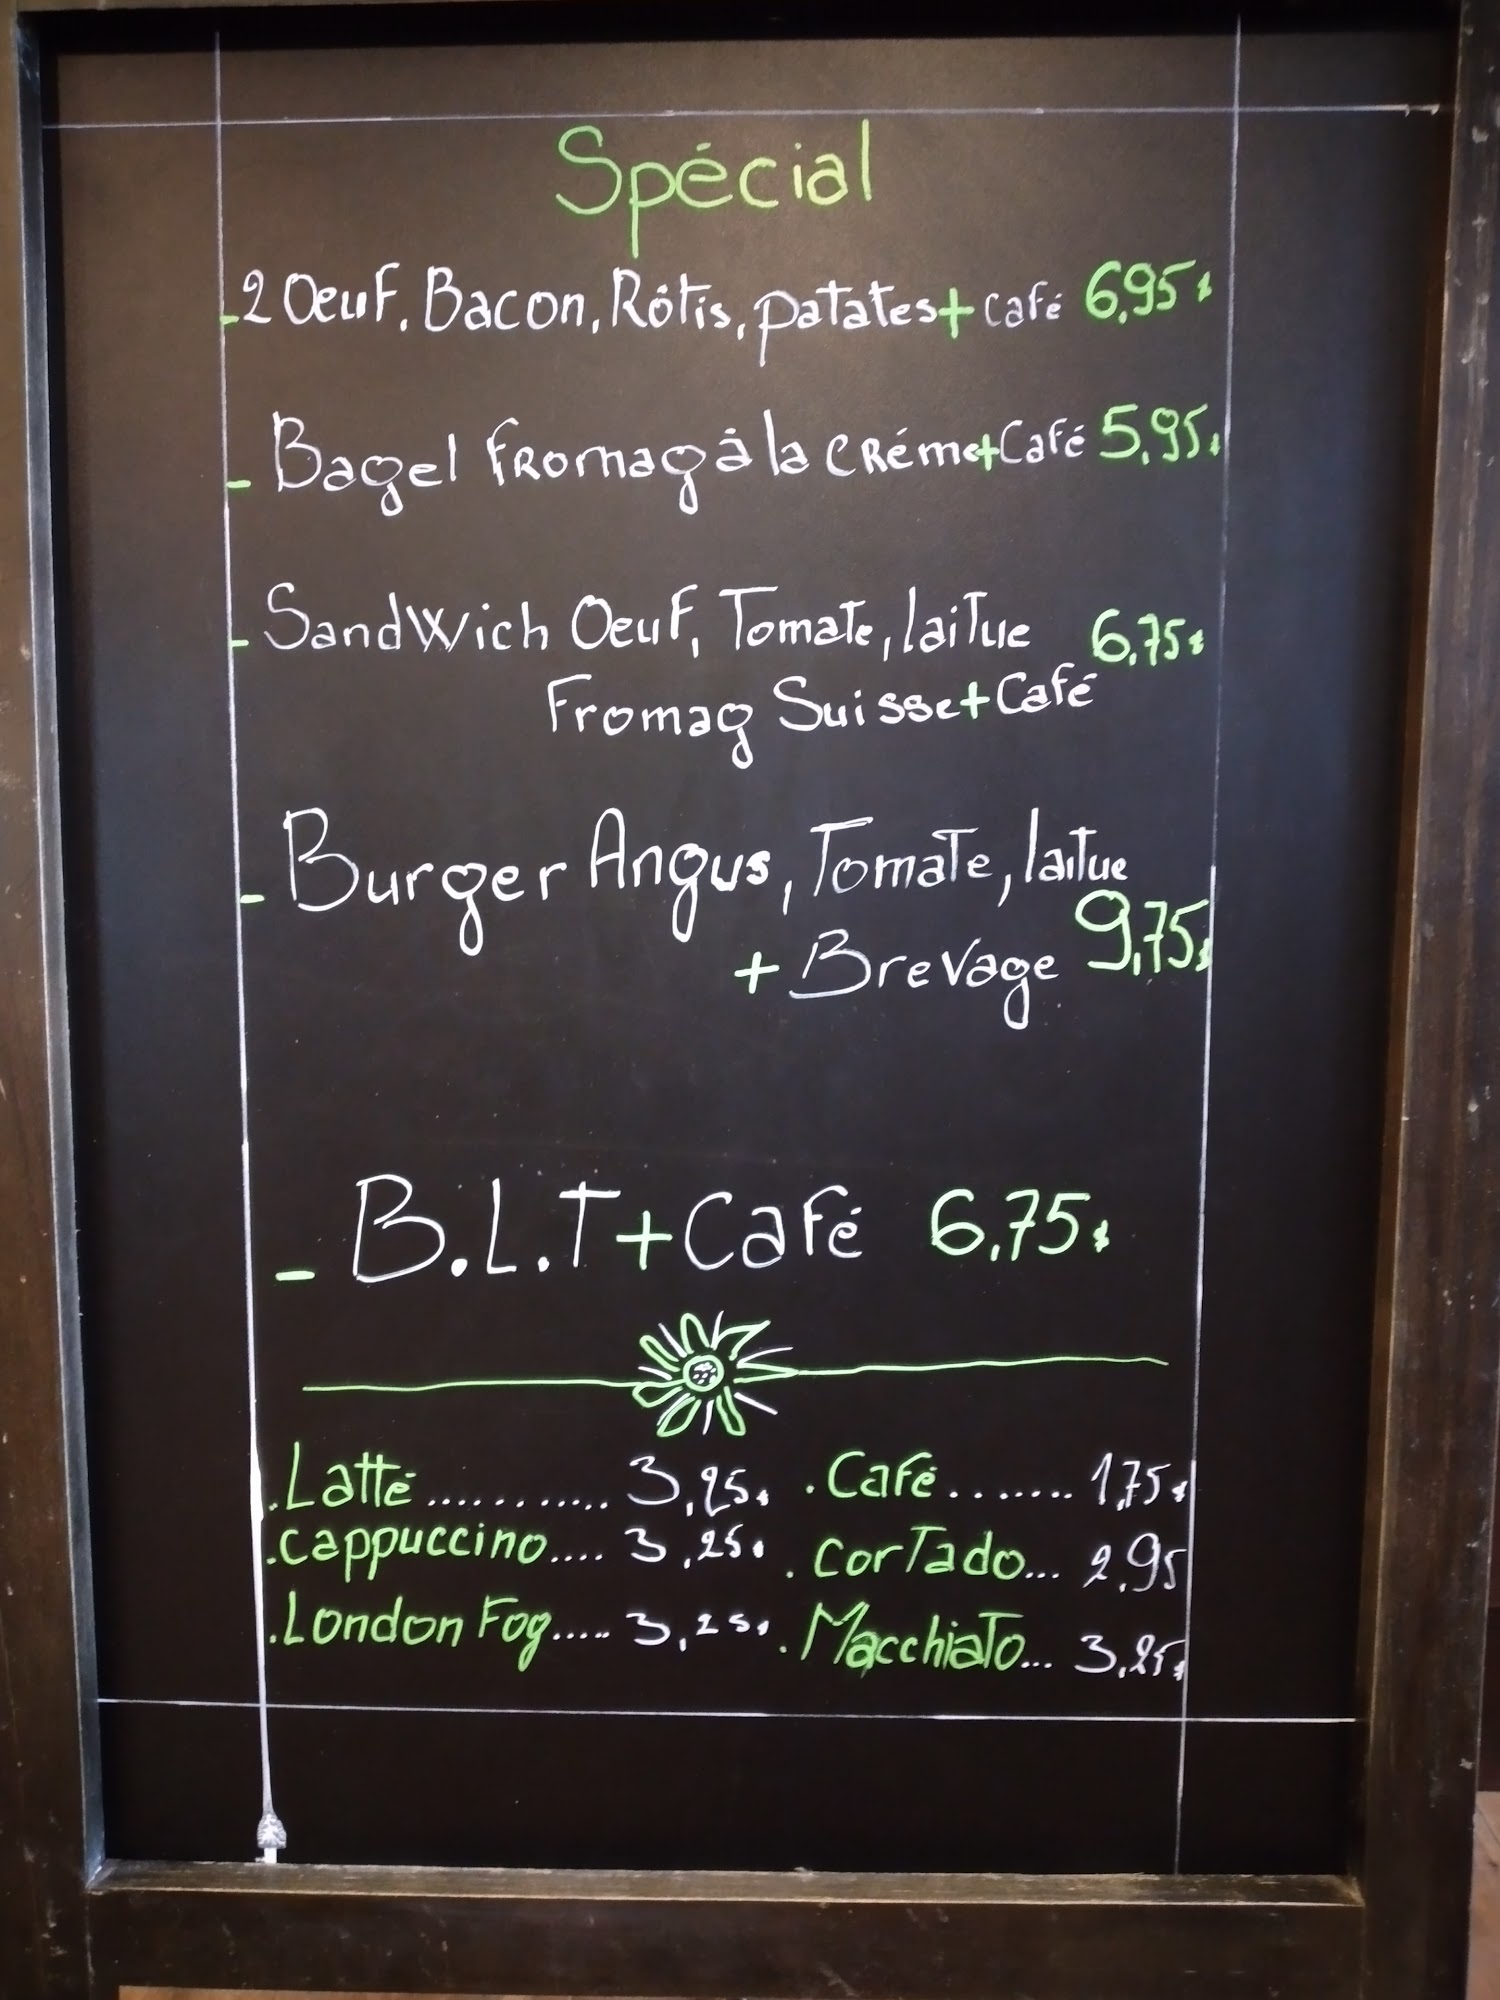 Spécial
-2 Oeuf, Bacon, Rôtis, patates + café 6,95$
- Bagel Fromag à la Créme + Café 5,95$
- Sandwich Oeuf, Tomate, laitue 6,75$
Fromag Suisse + Café
- Burger Angus, Tomate, laitue
+ Brevage 9,75$
- B.L.T + Café 6,75$
.Latté........... 3,25$ .Café........ 1,75$
.cappuccino.... 3,25$ .Cortado... 2,95
.London Fog..... 3,25$ .Macchiato... 3,25$